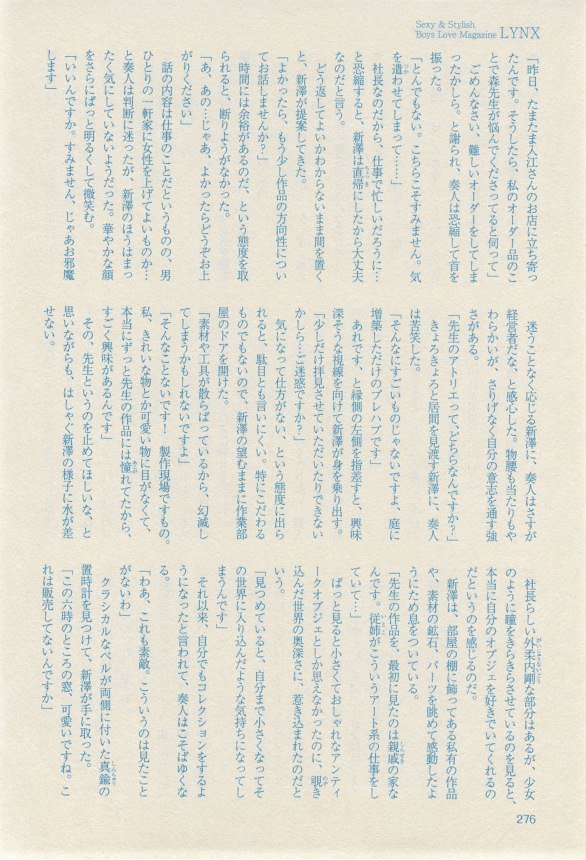 Sexy & Stylish
Boys Love Magazine LYNX
「昨日、たまたま入江さんのお店に立ち寄っ
たんです。そうしたら、私のオーダー品のこ
とで森先生が悩んでくださってると伺って」
ごめんなさい、難しいオーダーをしてしま
ったかしら。と謝られ、奏人は恐縮して首を
振った。
「とんでもない。こちらこそすみません。気
を遣わせてしまって……」
社長なのだから、仕事で忙しいだろうに…
と恐縮すると、新澤は直帰にしたから大丈夫
なのだと言う。
どう返してよいかわからないまま間を置く
と、新澤が提案してきた。
「よかったら、もう少し作品の方向性につい
てお話しませんか？」
時間には余裕があるのだ、という態度を取
られると、断りようがなかった。
「あ、あの…じゃあ、よかったらどうぞお上
がりください」
話の内容は仕事のことだというものの、男
ひとりの一軒家に女性を上げてよいものか…
と奏人は判断に迷ったが、新澤のほうはまっ
たく気にしていないようだった。華やかな顔
をさらにぱっと明るくして微笑む。
「いいんですか。すみません、じゃあお邪魔
します」
迷うことなく応じる新澤に、奏人はさすが
経営者だな、と感心した。物腰も当たりもや
わらかいが、さりげなく自分の意志を通す強
さがある。
「先生のアトリエって、どちらなんですか？」
きょろきょろと居間を見渡す新澤に、奏人
は苦笑した。
「そんなにすごいものじゃないですよ、庭に
増築しただけのプレハブです」
あれです、と縁側の左側を指差すと、興味
深そうな視線を向けて新澤が身を乗り出す。
「少しだけ拝見させていただいたりできない
かしら…ご迷惑ですか？」
気になって仕方がない、という態度に出ら
れると、駄目とも言いにくい。特にこだわる
ものでもないので、新澤の望むままに作業部
屋のドアを開けた。
「素材や工具が散らばっているから、幻滅し
てしまうかもしれないですよ」
「そんなことないです 製作現場ですもの。
私、きれいな物とか可愛い物に目がなくて、
本当にずっと先生の作品には憧れてたから、
すごく興味があるんです」
その、先生というのを止めてほしいな、と
思いながらも、はしゃぐ新澤の様子に水が差
せない。
社長らしい外柔内剛な部分はあるが、少女
のように瞳をきらきらさせているのを見ると、
本当に自分のオブジェを好きでいてくれるの
だというのを感じるのだ。
新澤は、部屋の棚に飾ってある私有の作品
や、素材の鉱石、パーツを眺めて感動したよ
うにため息をついている。
「先生の作品を、最初に見たのは親戚の家な
んです。従姉がこういうアート系の仕事をし
ていて…」
ぱっと見ると小さくておしゃれなアンティ
ークオブジェとしか思えなかったのに、覗き
込んだ世界の奥深さに、惹き込まれたのだと
いう。
「見つめていると、自分まで小さくなってそ
の世界に入り込んだような気持ちになってし
まうんです」
それ以来、自分でもコレクションをするよ
うになったと言われて、奏人はこそばゆくな
る。
「わあ、これも素敵。こういうのは見たこと
がないわ」
クラシカルなベルが両側に付いた真鍮の
置時計を見つけて、新澤が手に取った。
「この六時のところの窓、可愛いですね。こ
れは販売してないんですか」
276